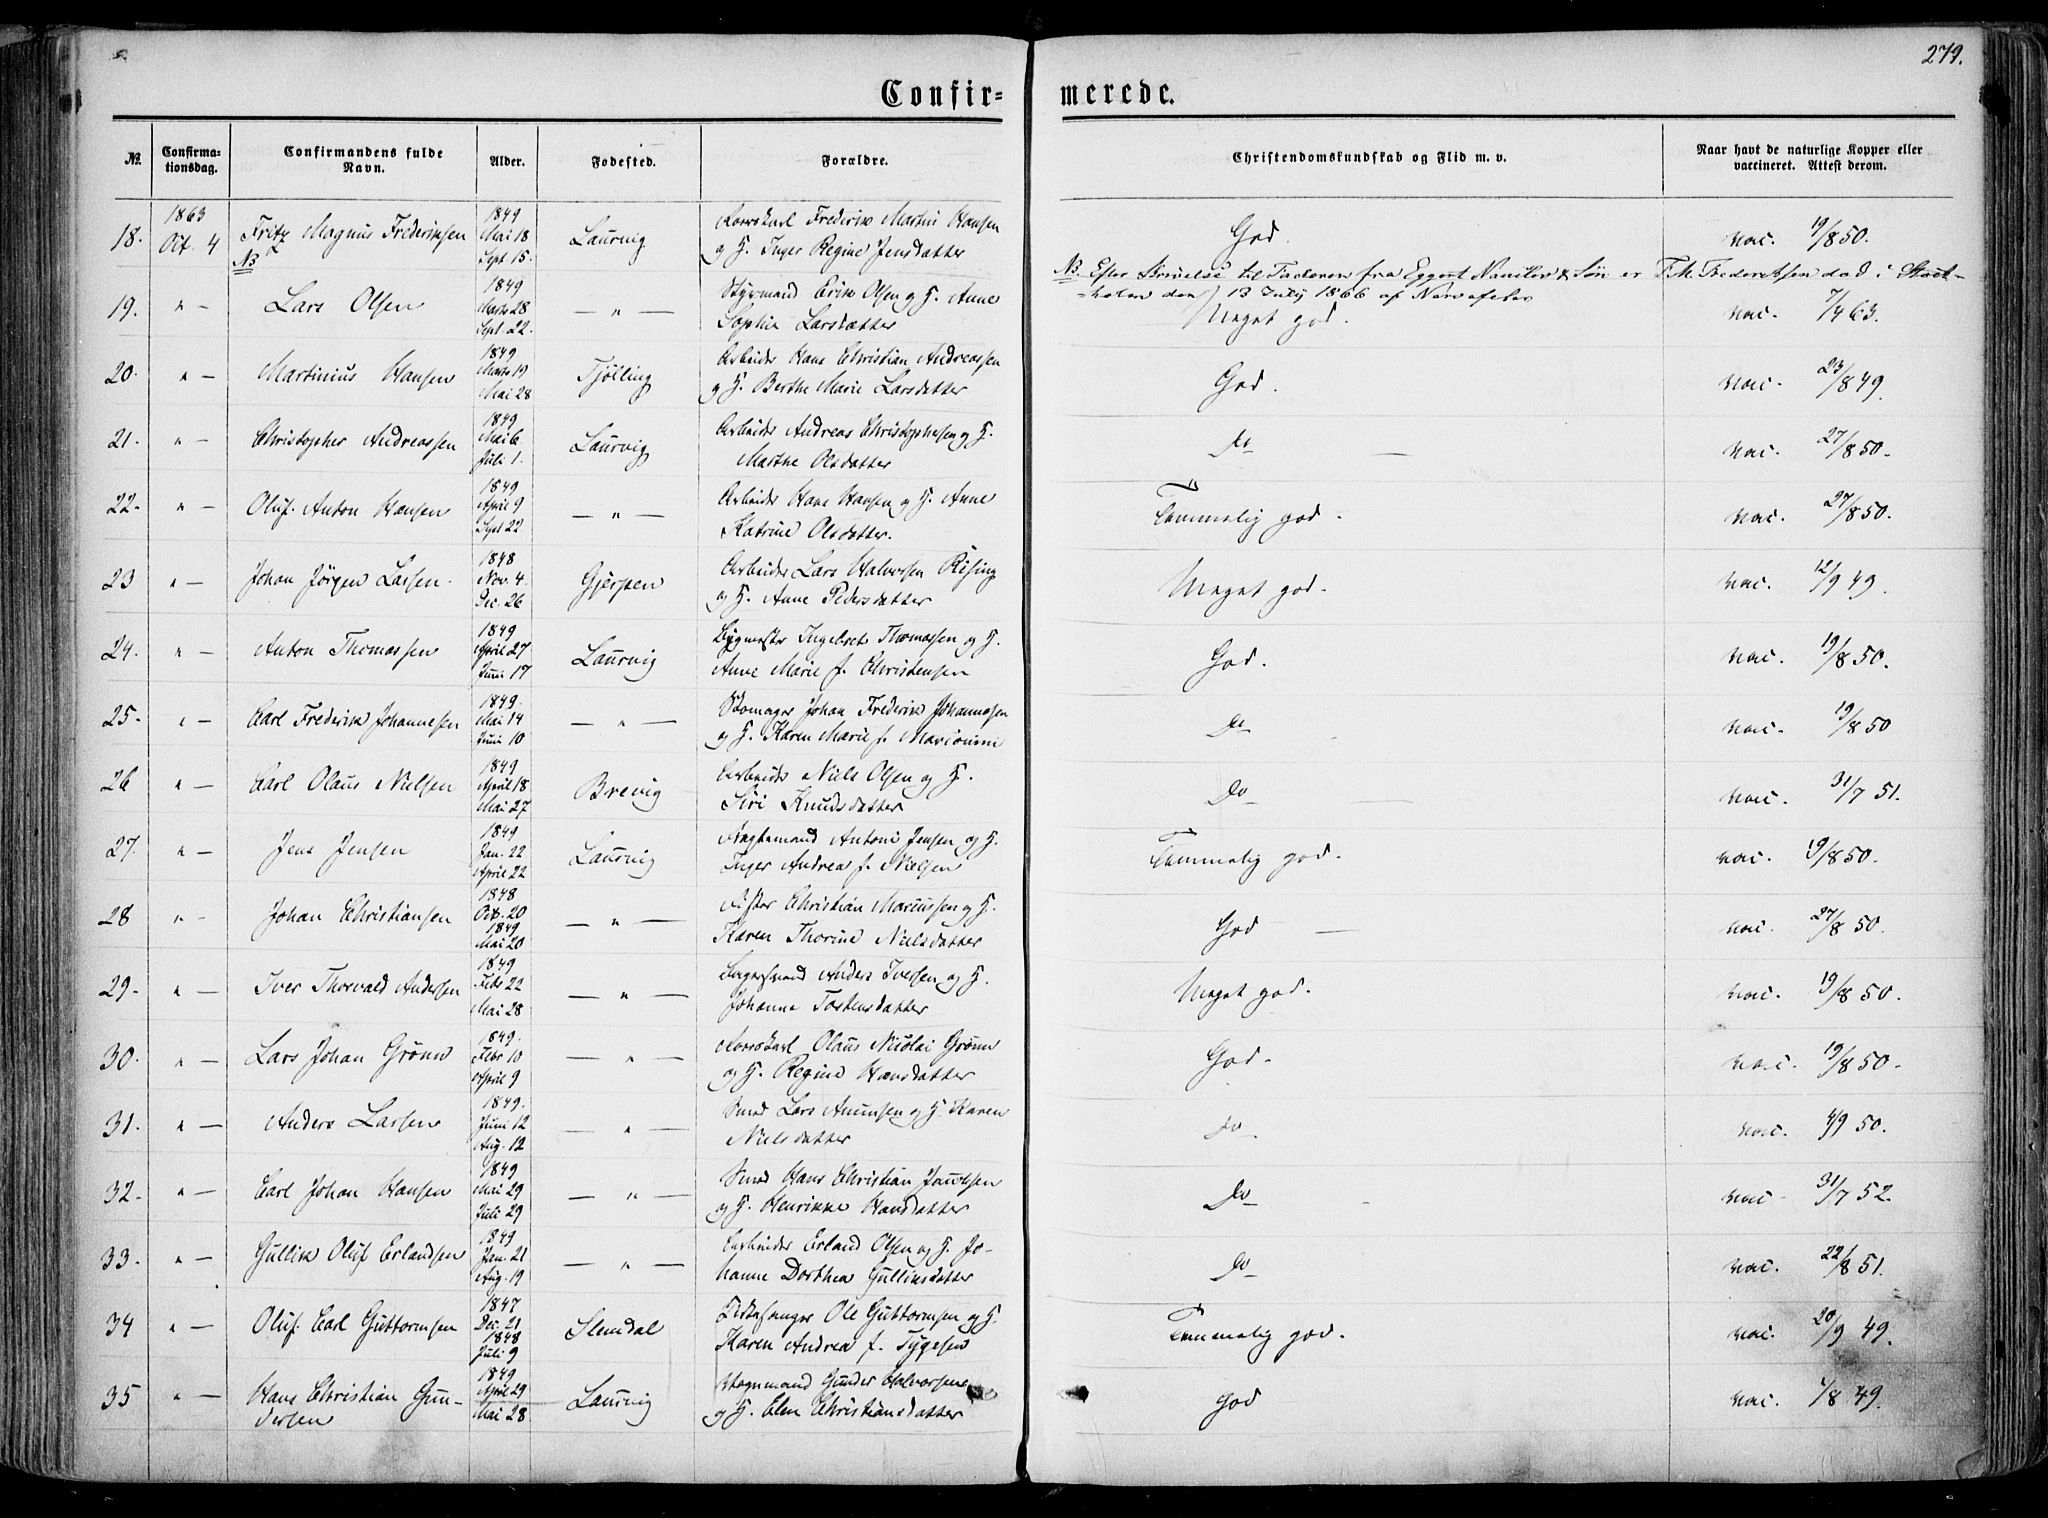 279.
Confir-
merede.
No. Confirma- Confirmandens fulde Alder. Fødested. Forældre. Christendomskundskab og Flid m. v. Naar havt de naturlige Kopper eller
tionsdag. Navn. vaccineret. Attest derom.
1863 1849
18. Oct. 4 Fritz Magnus Frederiksen Mai 18 Laurvig Frederik Martin Hansen God. vac. 19/8 50.
NB Sept 15. og H. Inger Regine Jensdatter
NB. Efter Skrivelse til Faderen fra Eggert & Søn er F. M. Frederiksen død i
den 13 July 1866 af
1849
19. " — Lars Olsen Marts 28 — " — Styrmand Erik Olsen og H. Anne Meget god. vac. 7/4 63.
Sept. 22. Sophie Larsdatter
1849
20. " — Martinius Hansen Marts 19 Tjølling Arbeider Hans Christian Andreassen God. vac. 23/8 49.
Mai 28 og H. Berthe Marie Larsdatter
1849
21. " — Christopher Andreassen Mai 6 Laurvig Arbeider Andreas Christophersen og H. Do — vac. 27/8 50.
Juli 1. Marthe Olsdatter
1849
22. " — Oluf Anton Hansen April 9 — " — Arbeider Hans Hansen og H. Anne Temmelig god. vac. 27/8 50.
Sept 22. Katrine Olsdatter.
1848
23 " — Johan Jørgen Larsen. Nov. 4. Gjerpen Arbeider Lars Halvorsen Rising Meget god. vac. 12/9 49.
Dec. 26 og H. Anne Pedersdatter
1849
24. " — Anton Thomassen April 27 Laurvig Bygmester Ingebret Thomassen og H. God. vac. 19/8 50.
Juni 17 Anne Marie f. Christensen
1849.
25. " — Carl Frederik Johannesen Mai 14 — " — Skomager Johan Frederik Johannesen Do vac. 19/8 50
Juni 10 og H. Karen Marie f.
1849
26 " — Carl Olaus Nielsen April 18 Brevig Arbeider Niels Olsen og H. Do — vac. 31/7 51.
Mai 27 Siri Knudsdatter
1849
27. " — Jens Jensen Jan. 22 Laurvig Antoni Jensen og H. Temmelig god. vac. 19/8 50.
April 22 Inger Andrea f. Nielsen
1848
28 " — Johan Christiansen Oct. 20 — " — Fisker Christian Marcussen og H. God — vac. 27/8 50.
1849
Mai 20 Karen Thorine Nielsdatter
1849
29. " — Iver Thorvald Andersen Febr 22 — " — Anders Iversen og H. Meget god. vac. 19/8 50.
Mai 28 Johanne Torstensdatter
1849.
30. " — Lars Johan Grønn Febr 10 — " — Olaus Nicolai Grønn God. vac. 19/8 50.
April 9 og H. Regine Hansdatter
1849.
31. " — Anders Larsen Juni 12 — " — Smed Lars Amunsen og H. Karen Do. vac. 4/9 50.
Aug. 12 Nielsdatter
1849
32. " — Carl Johan Hansen Mai 29 — " — Smed Hans Christian Jacobsen Do vac 31/7 52.
Juli 29 og H. Henrikke Hansdatter
1849
33. " — Gullik Oluf Erlandsen Jan. 21 — " — Arbeider Erland Olsen og H. Jo- Do vac. 22/8 51.
Aug. 19 hanne Dorthea Gulliksdatter
1847
34 " — Oluf Carl Guttormsen Dec. 21 Slemdal Ole Guttormsen og H. Temmelig god. vac. 20/9 49.
1848
Juli 9 Karen Andrea f. Tygesen
1849
35 " — Hans Christian Gun- April 29 Laurvig Vognmand Gunder Halvorsen God vac. 1/8 49.
dersen Mai 28 og H. Elen Christiansdatter